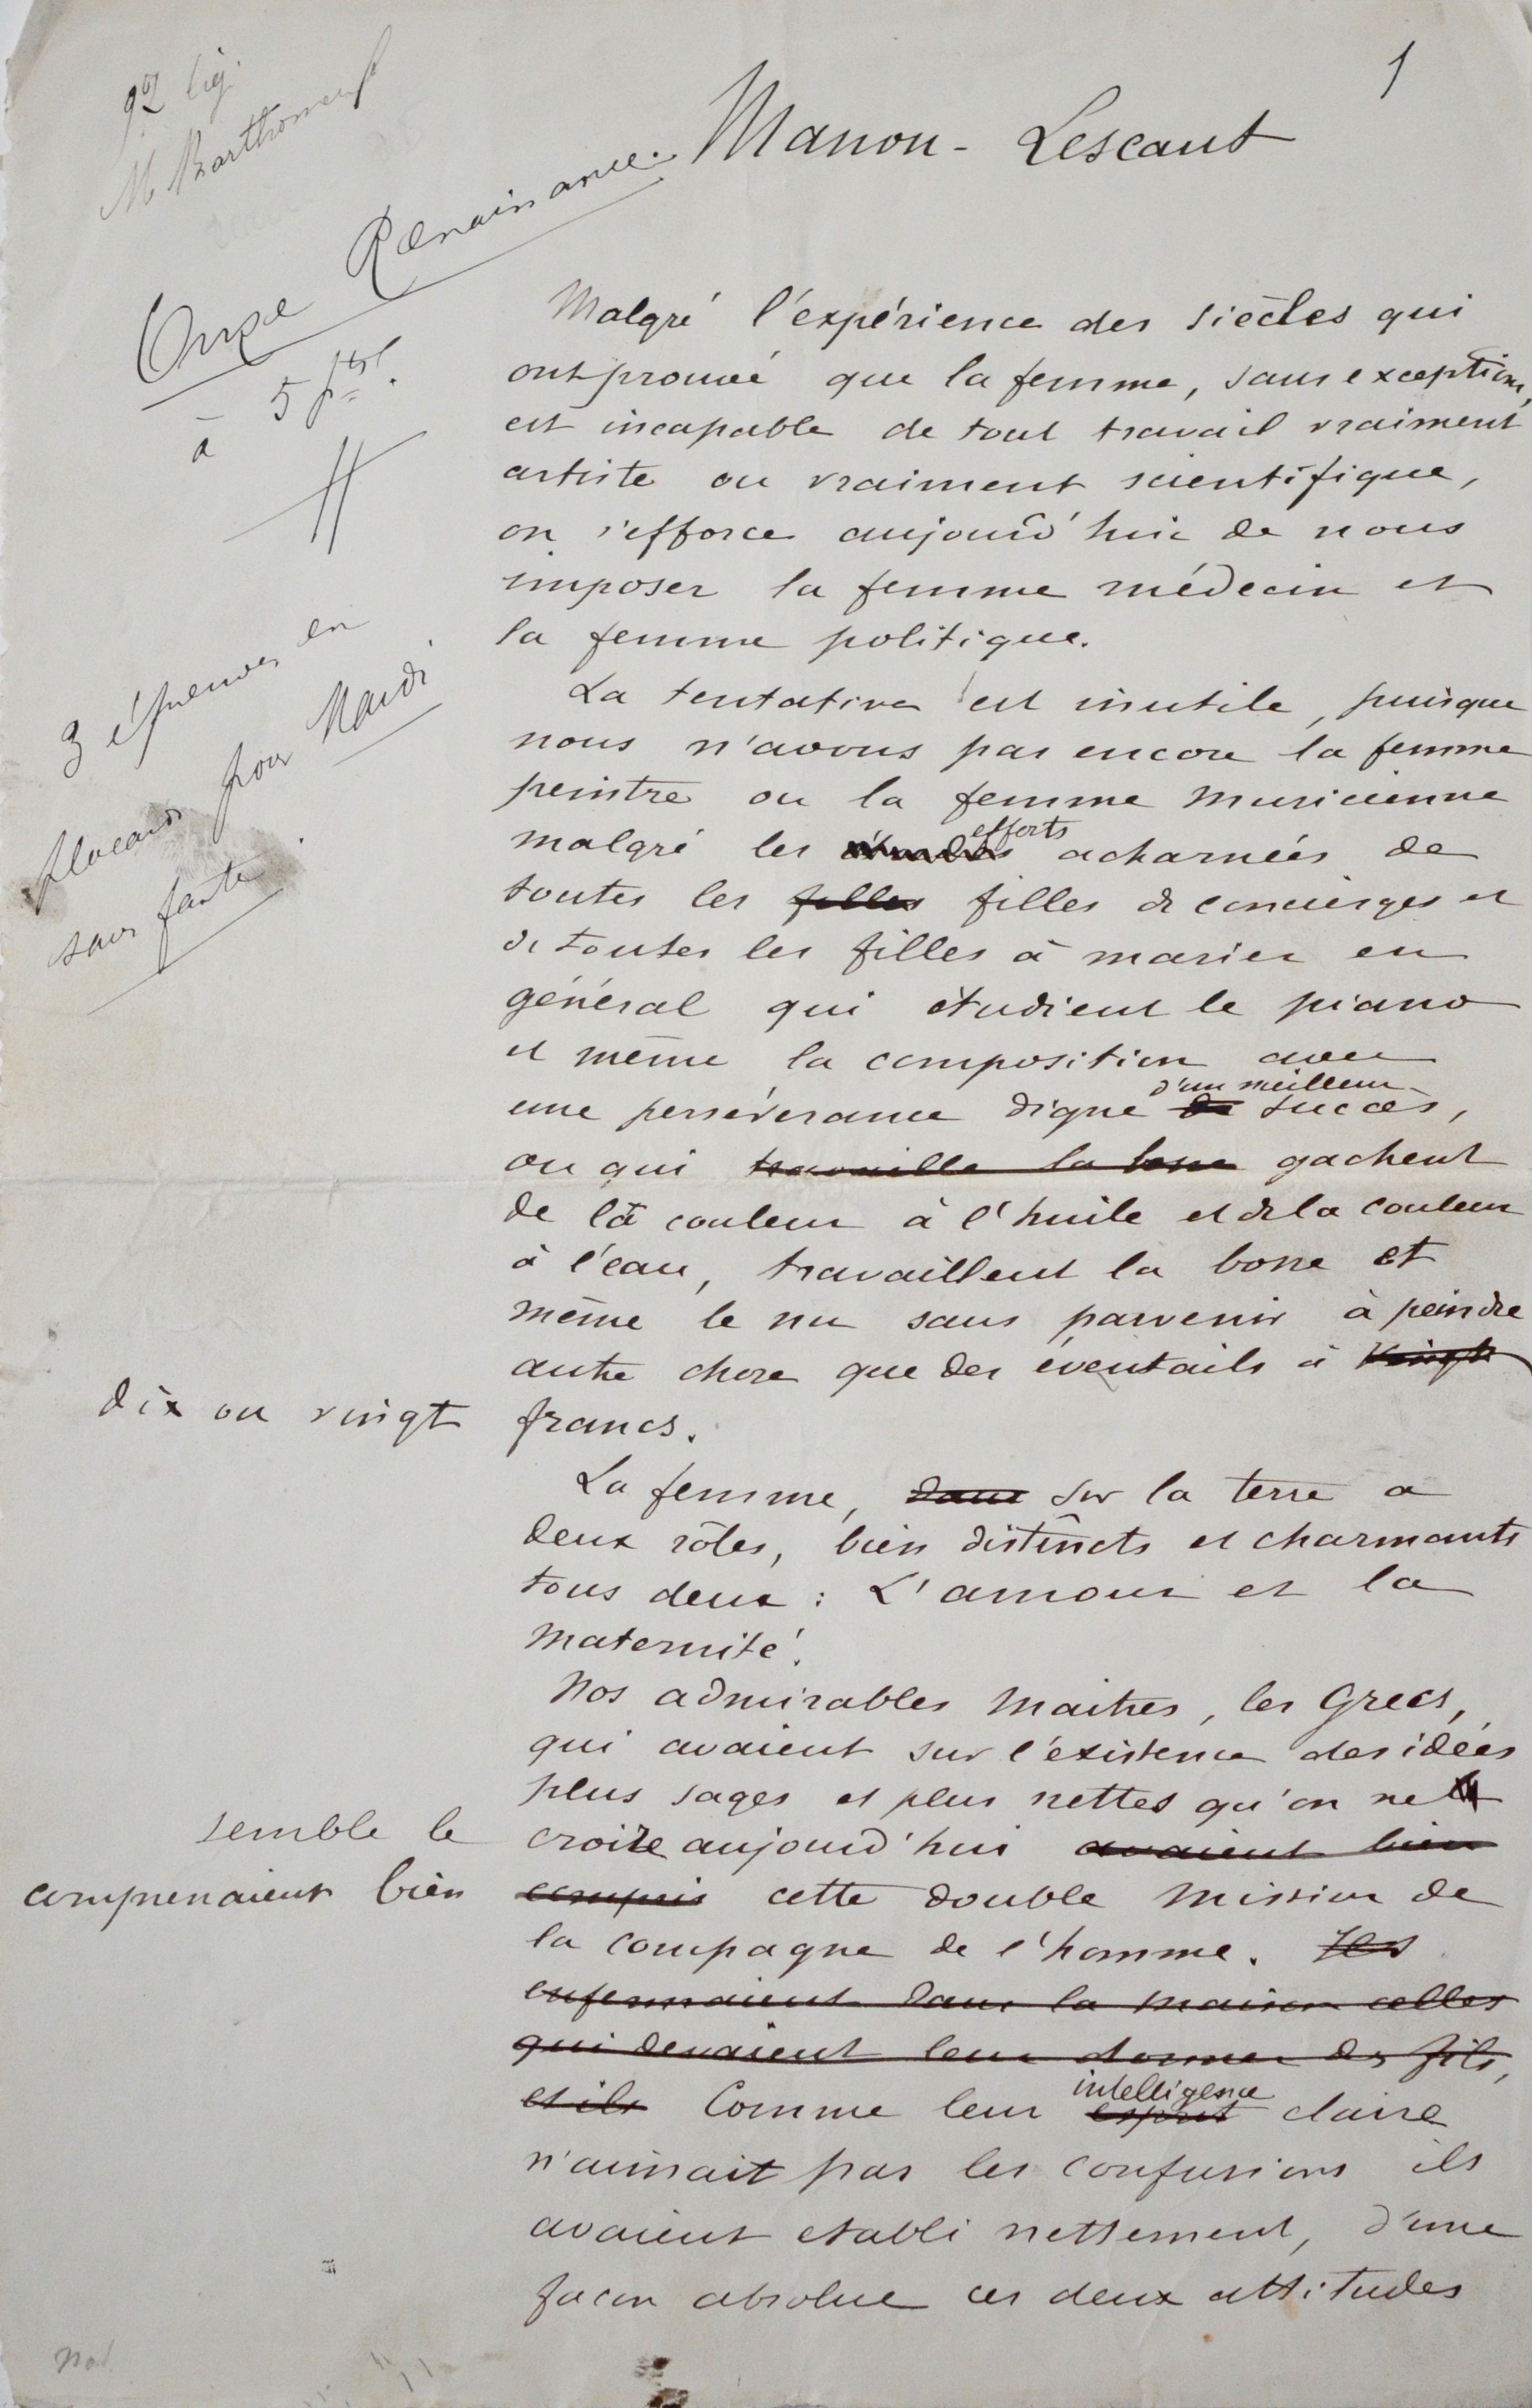 1
92 lig.
M Barthomeuf
Manon - Lescaut
Onze Renaissance.
à 5 pts.
3 épreuves en
placards pour Mardi
sans faute.
Malgré l'expérience des siècles qui
ont prouvé que la femme, sans exception,
est incapable de tout travail vraiment
artiste ou vraiment scientifique,
on s'efforce aujourd'hui de nous
imposer la femme médecin et
la femme politique.
La tentative est inutile, puisque
nous n'avons pas encore la femme
peintre ou la femme musicienne
efforts
malgré les études acharnées de
toutes les filles filles de concierges et
de toutes les filles à marier en
général qui étudient le piano
et même la composition avec
d'un meilleur
une persévérance digne de succès,
ou qui travaille la bosse gachent
de la couleur à l'huile et de la couleur
à l'eau, travaillent la bosse et
même le nu sans parvenir à peindre
autre chose que des éventails à vingt
dix ou vingt francs.
La femme, dans sur la terre a
deux rôles, bien distincts et charmants
tous deux : L'amour et la
maternité.
Nos admirables maitres, les Grecs,
qui avaient sur l'existence des idées
plus sages et plus nettes qu'on ne
semble le croire aujourd'hui avaient bien
comprenaient bien compris cette double mission de
la compagne de l'homme. Ils
enfermaient dans la maison celles
qui devaient leur donner des fils,
intelligence
et ils Comme leur esprit claire
n'aimait pas les confusions ils
avaient etabli nettement, d'une
facon absolue ces deux attitudes